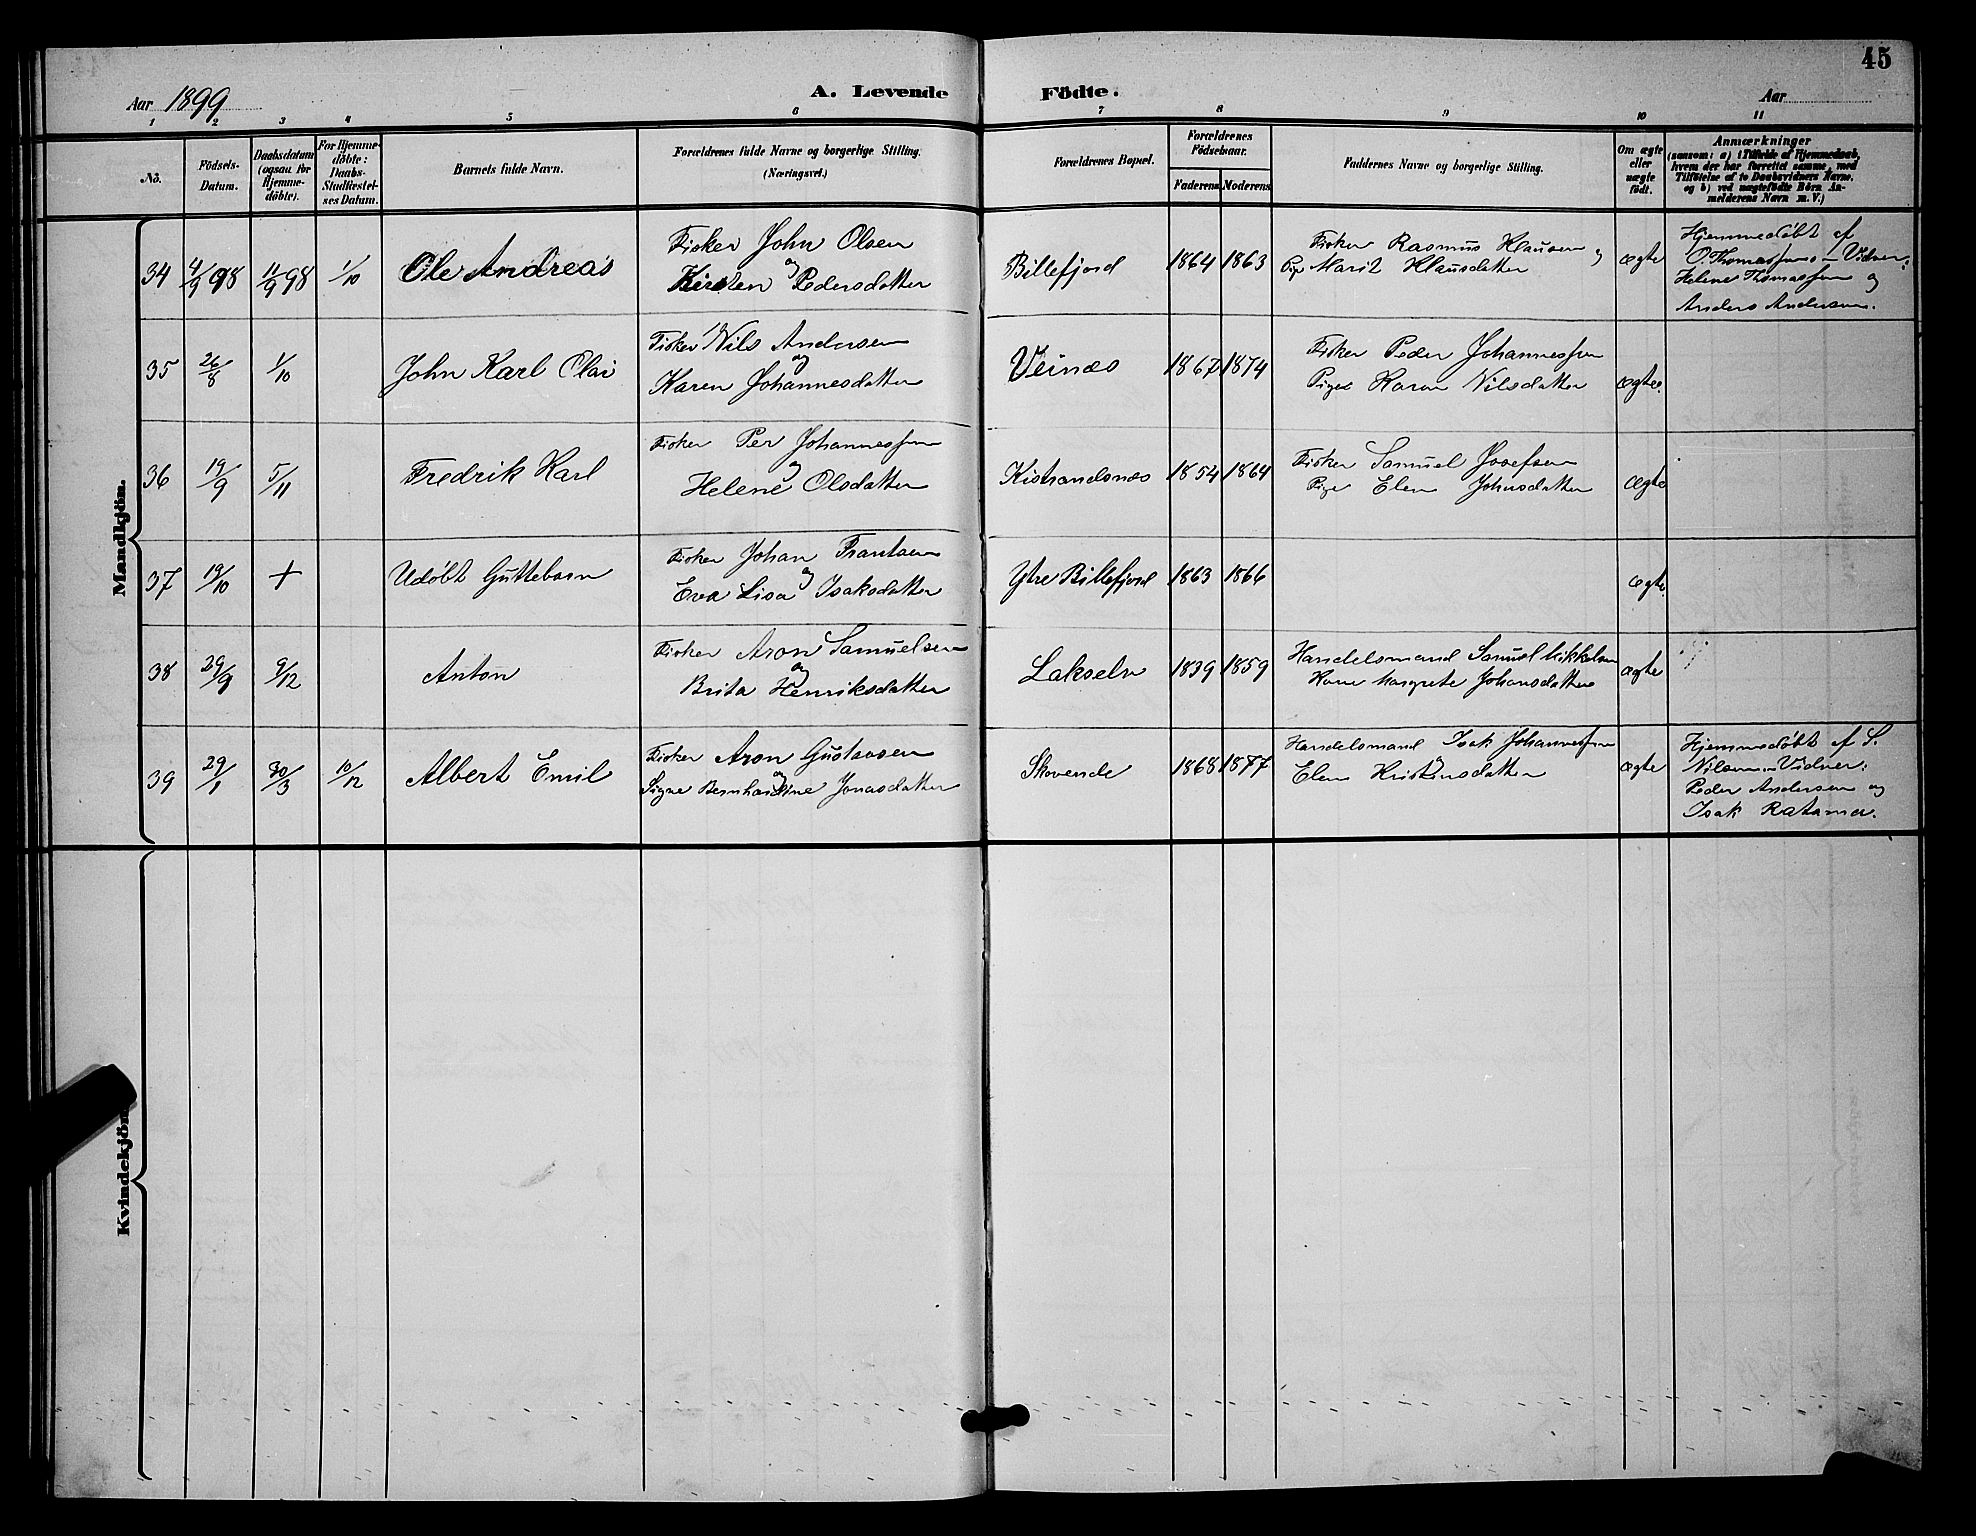 45
Aar 1899
A. Levende Födte.
Aar
1 2 3 4 5 6 7 8 9 10 11
No.
Födsels-
Datum.
Daabsdatum
(ogsaa for
Hjemme-
döbte).
For Hjemme-
döbte:
Daabs-
Stadfæstel-
ses Datum.
Barnets fulde Navn.
Forældrenes fulde Navne og borgerlige Stilling.
(Næringsvei.)
Forældrenes Bopæl.
Forældrenes
Födselsaar.
Faderens Moderens
Faddernes Navne og borgerlige Stilling.
Om ægte
eller
uægte
født.
Anmærkninger
(saasom: a) i Tilfælde af Hjemmedaab,
hvem der har forrettet samme, med
Tilföielse af to Daabsvidners Navne,
og b) ved uægtefödte Börn An-
melderens Navn m. V.)
Mandkjön.
34 4/9 98 11/9 98 1/10 Ole Andreas
Fisker John Olsen
og
Kirsten Pedersdatter
Billefjord 1864 1863
Fisker Rasmus Klausen og
Pige Marit Klausdatter
ægte
Hjemmedøbt af
O. Thomassen – Vidner:
Helene Thomassen og
Anders Andersen.
35 26/8 1/10 John Karl Olai
Fisker Nils Andersen
og
Karen Johannesdatter
Veinæs 1867 1874
Fisker Peder Johannessen
Pige Karen Nilsdatter
ægte.
36 19/9 5/11 Fredrik Karl
Fisker Per Johannessen
og
Helene Olsdatter
Kistrandsnæs 1854 1864
Fisker Samuel Josefsen
Pige Elen Johnsdatter
Ægte
37 19/10 + Udøbt Guttebarn
Fisker Johan Frantsen
og
Eva Lisa Isaksdatter
Ytre Billefjord 1863 1866
Ægte.
38 29/9 9/12 Anton
Fisker Aron Samuelsen
og
Brita Henriksdatter
Lakselv 1839 1859
Handelsmand Samuel Mikkelsen
Kone Margrete Johansdatter
ægte
39 29/1 30/3 10/12 Albert Emil
Fisker Aron Gustavsen
og
Signe Bernhardine Jonasdatter
Skovende 1868 1877
Handelsmand Isak Johannessen
og
Elen Kristinsdatter
ægte
Hjemmedøbt af S.
Nilsen – Vidner:
Peder Andersen og
Isak Ratama.
Kvindekjön